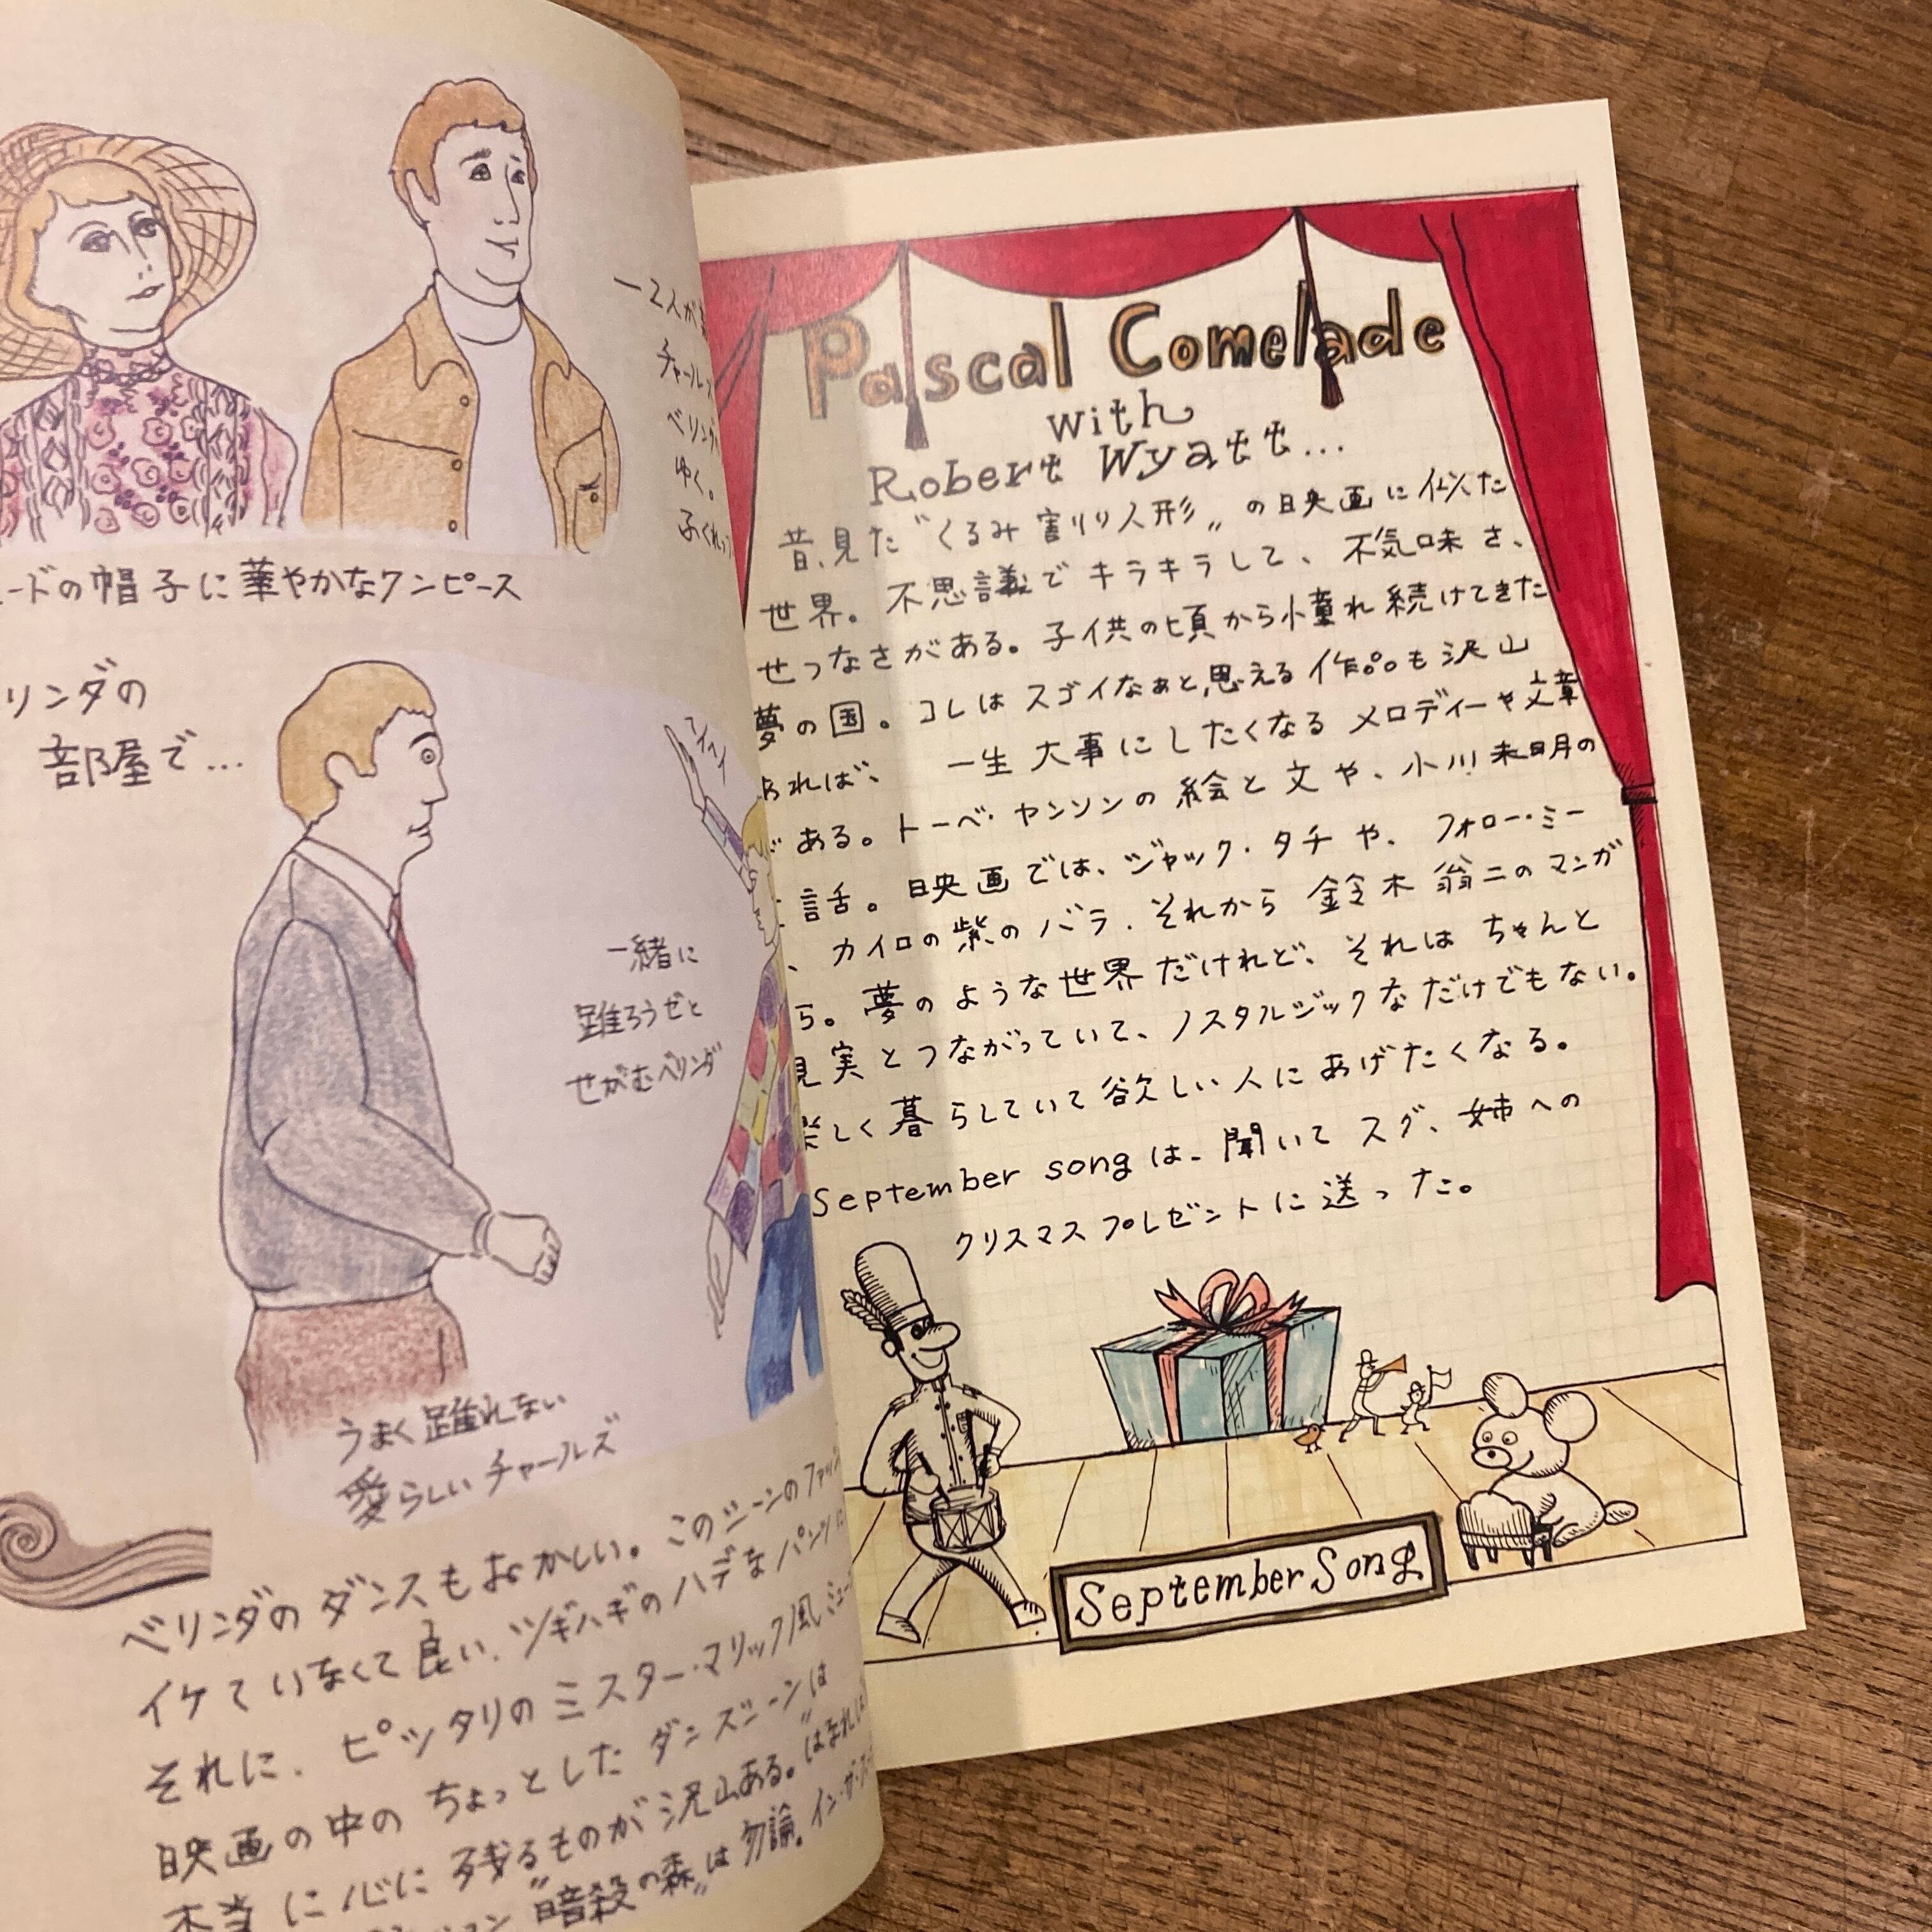 ードの帽子に華やかなワンピース
リンダの
部屋で…
ー2人が
チャールズ
ベリンダ
ゆく。
一緒に
踊ろうゼと
せがむベリンダ
うまく踊れない
愛らしいチャールズ
ベリンダのダンスもおかしい。このシーンのファッ
イケていなくて良い、ツギハギのハデなパンツ
それに、ピッタリのミスター・マリック風ミュー
映画の中のちょっとしたダンスシーンは
本当に心に残るものが沢山ある。"はなれ
"暗殺の森"は勿論。イン・ザ・
Pascal Comelade
with
Robert Wyatt...
昔、見た"くるみ割り人形"の映画に似た
世界。不思議でキラキラして、不気味さ、
せつなさがある。子供の頃から憧れ続けてきた
夢の国。コレはスゴイなぁと思える作品も沢山
あれば、一生大事にしたくなるメロディーや文章
がある。トーベ・ヤンソンの絵と文や、小川未明の
話。映画では、ジャック・タチや、フォロー・ミー
、カイロの紫のバラ、それから鈴木翁二のマンガ
ら。夢のような世界だけれど、それはちゃんと
現実とつながっていて、ノスタルジックなだけでもない。
楽しく暮らしていて欲しい人にあげたくなる。
September songは、聞いてスグ、姉への
クリスマスプレゼントに送った。
September Song